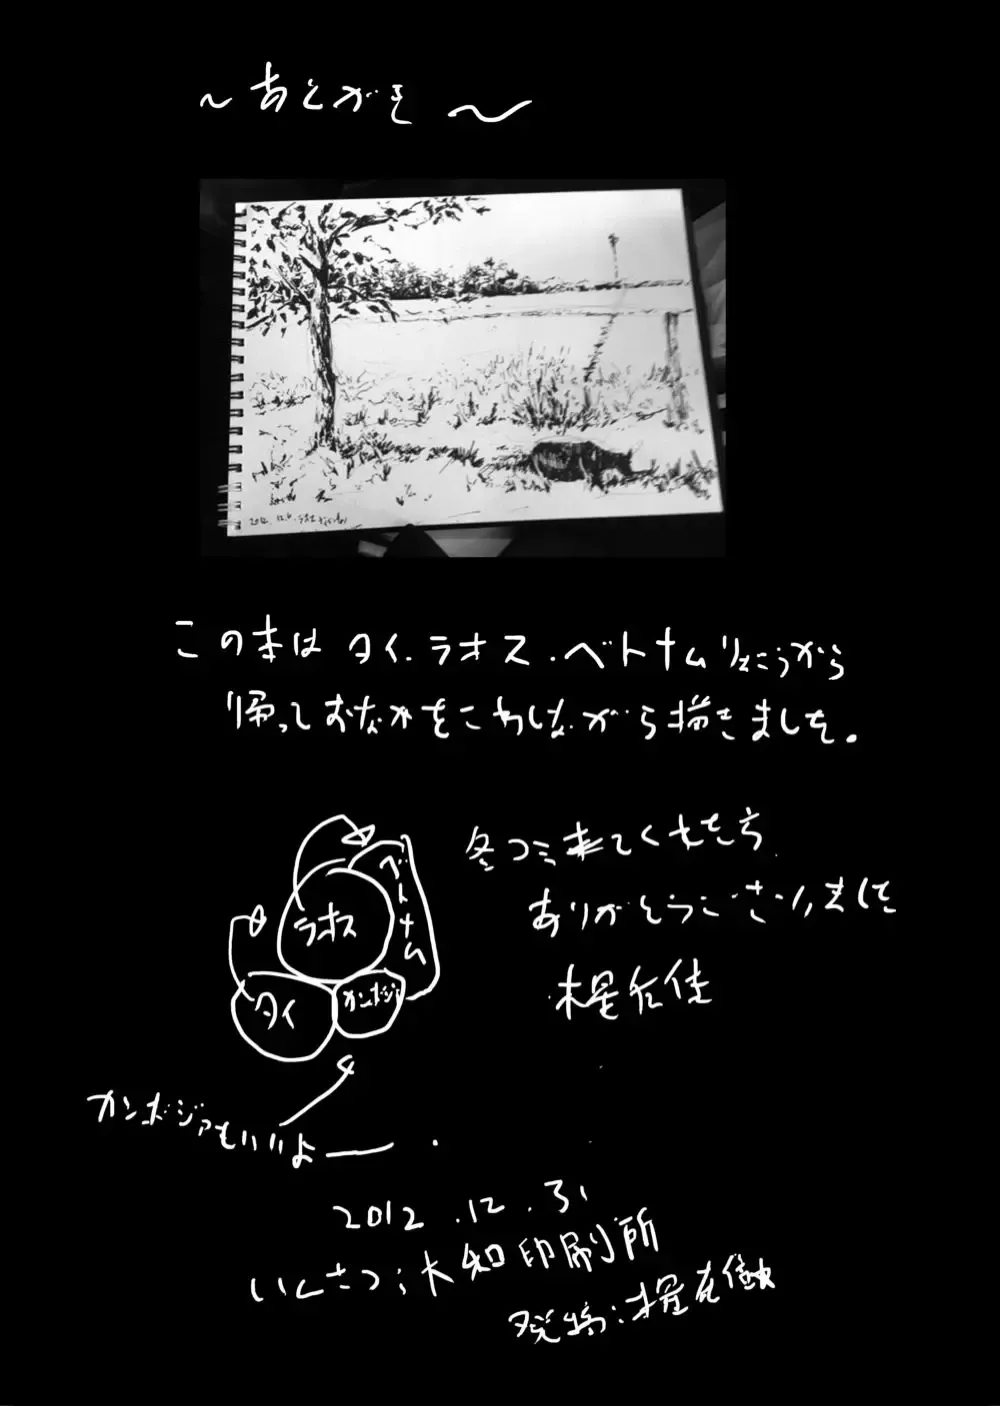 〜あとがき〜
2012.12.
この本は タイ.ラオス.ベトナムりょこうから
帰っておなかをこわしながら描きました。
冬コミ来てくれた方
ありがとうございました
ラオス
ベトナム
タイ
カンボジア
カンボジアもいいよー
2012.12.31
いんさつ:大知印刷所
発行: